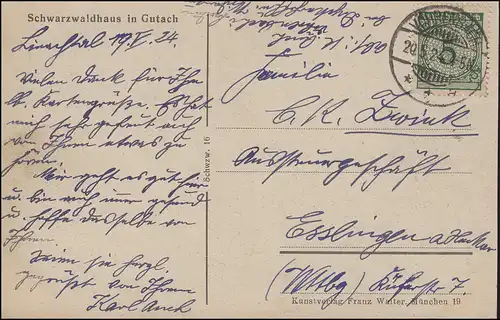 Schwarzwaldhaus in Gutach
Linachtal 19.V.24.
Vielen Dank für Ihre
lb. Kartengrüße. Es hat
mich sehr gefreut auch
von Ihnen etwas zu
hören.
Mir geht es gut hier
u. bin auch immer gesund
u. hoffe dasselbe von
Ihnen.
Seien sie herzl.
gegrüßt von Ihrem
Karl Auch
Schwzw. 16
5
Familie
C. K. Zwink
Aussteuergeschäft
Esslingen a. Neckar
(Wttbg) Küferstr 7.
Kunstverlag Franz Walter, München 19